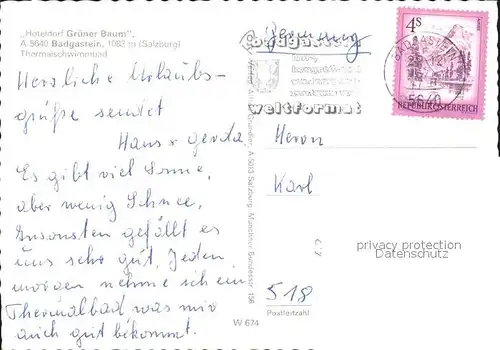 „Hoteldorf Grüner Baum",
A 5640 Badgastein, 1083 m (Salzburg)
Thermalschwimmbad
Herzliche Urlaubs-
grüße sendet
Hans & Gerda
Es gibt viel Sonne,
aber wenig Schnee,
Ansonsten gefällt es
uns sehr gut. Jeden
morgen nehme ich ein
Thermalbad was mir
auch gut bekommt.
W 674
badgastein
weltformat
Germany
4S
REPUBLIK ÖSTERREICH
BADGASTEIN
5640
Herrn
Karl
privacy protection
Datenschutz
518
Postleitzahl